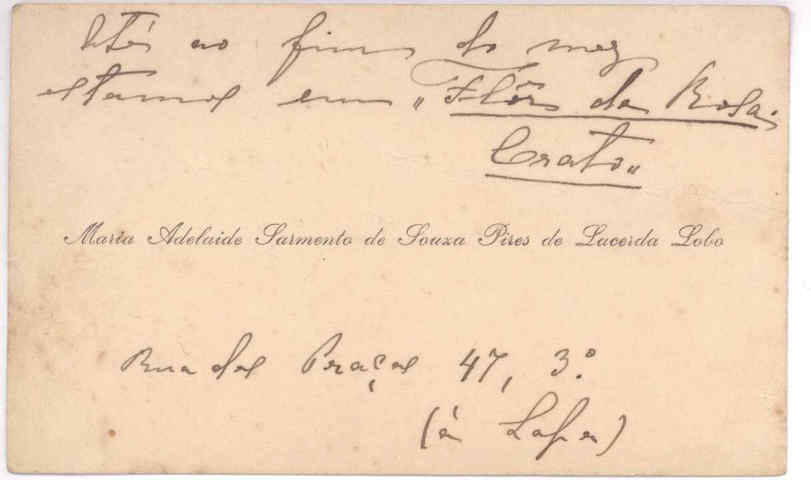 Até ao fim do mez
estamos em "Flôr da Rosa.
Crato"
Maria Adelaide Sarmento de Souza Pires de Lacerda Lobo
Rua das Praças 47, 3º
(á Lapa)